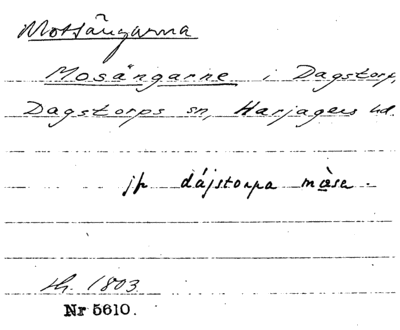 Mossängarna
Mosängarne i Dagstorp,
Dagstorps sn, Harjagers hd.
jfr dájstorpa måsa.
sk. 1803
Nr 5610.